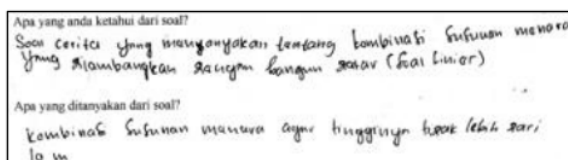 Apa yang anda ketahui dari soal?
Soal cerita yang menanyakan tentang kombinasi susunan menara
yang dilambangkan dengan bangun datar (Soal linier)
Apa yang ditanyakan dari soal?
kombinasi susunan menara agar tingginya tidak lebih dari
10 m